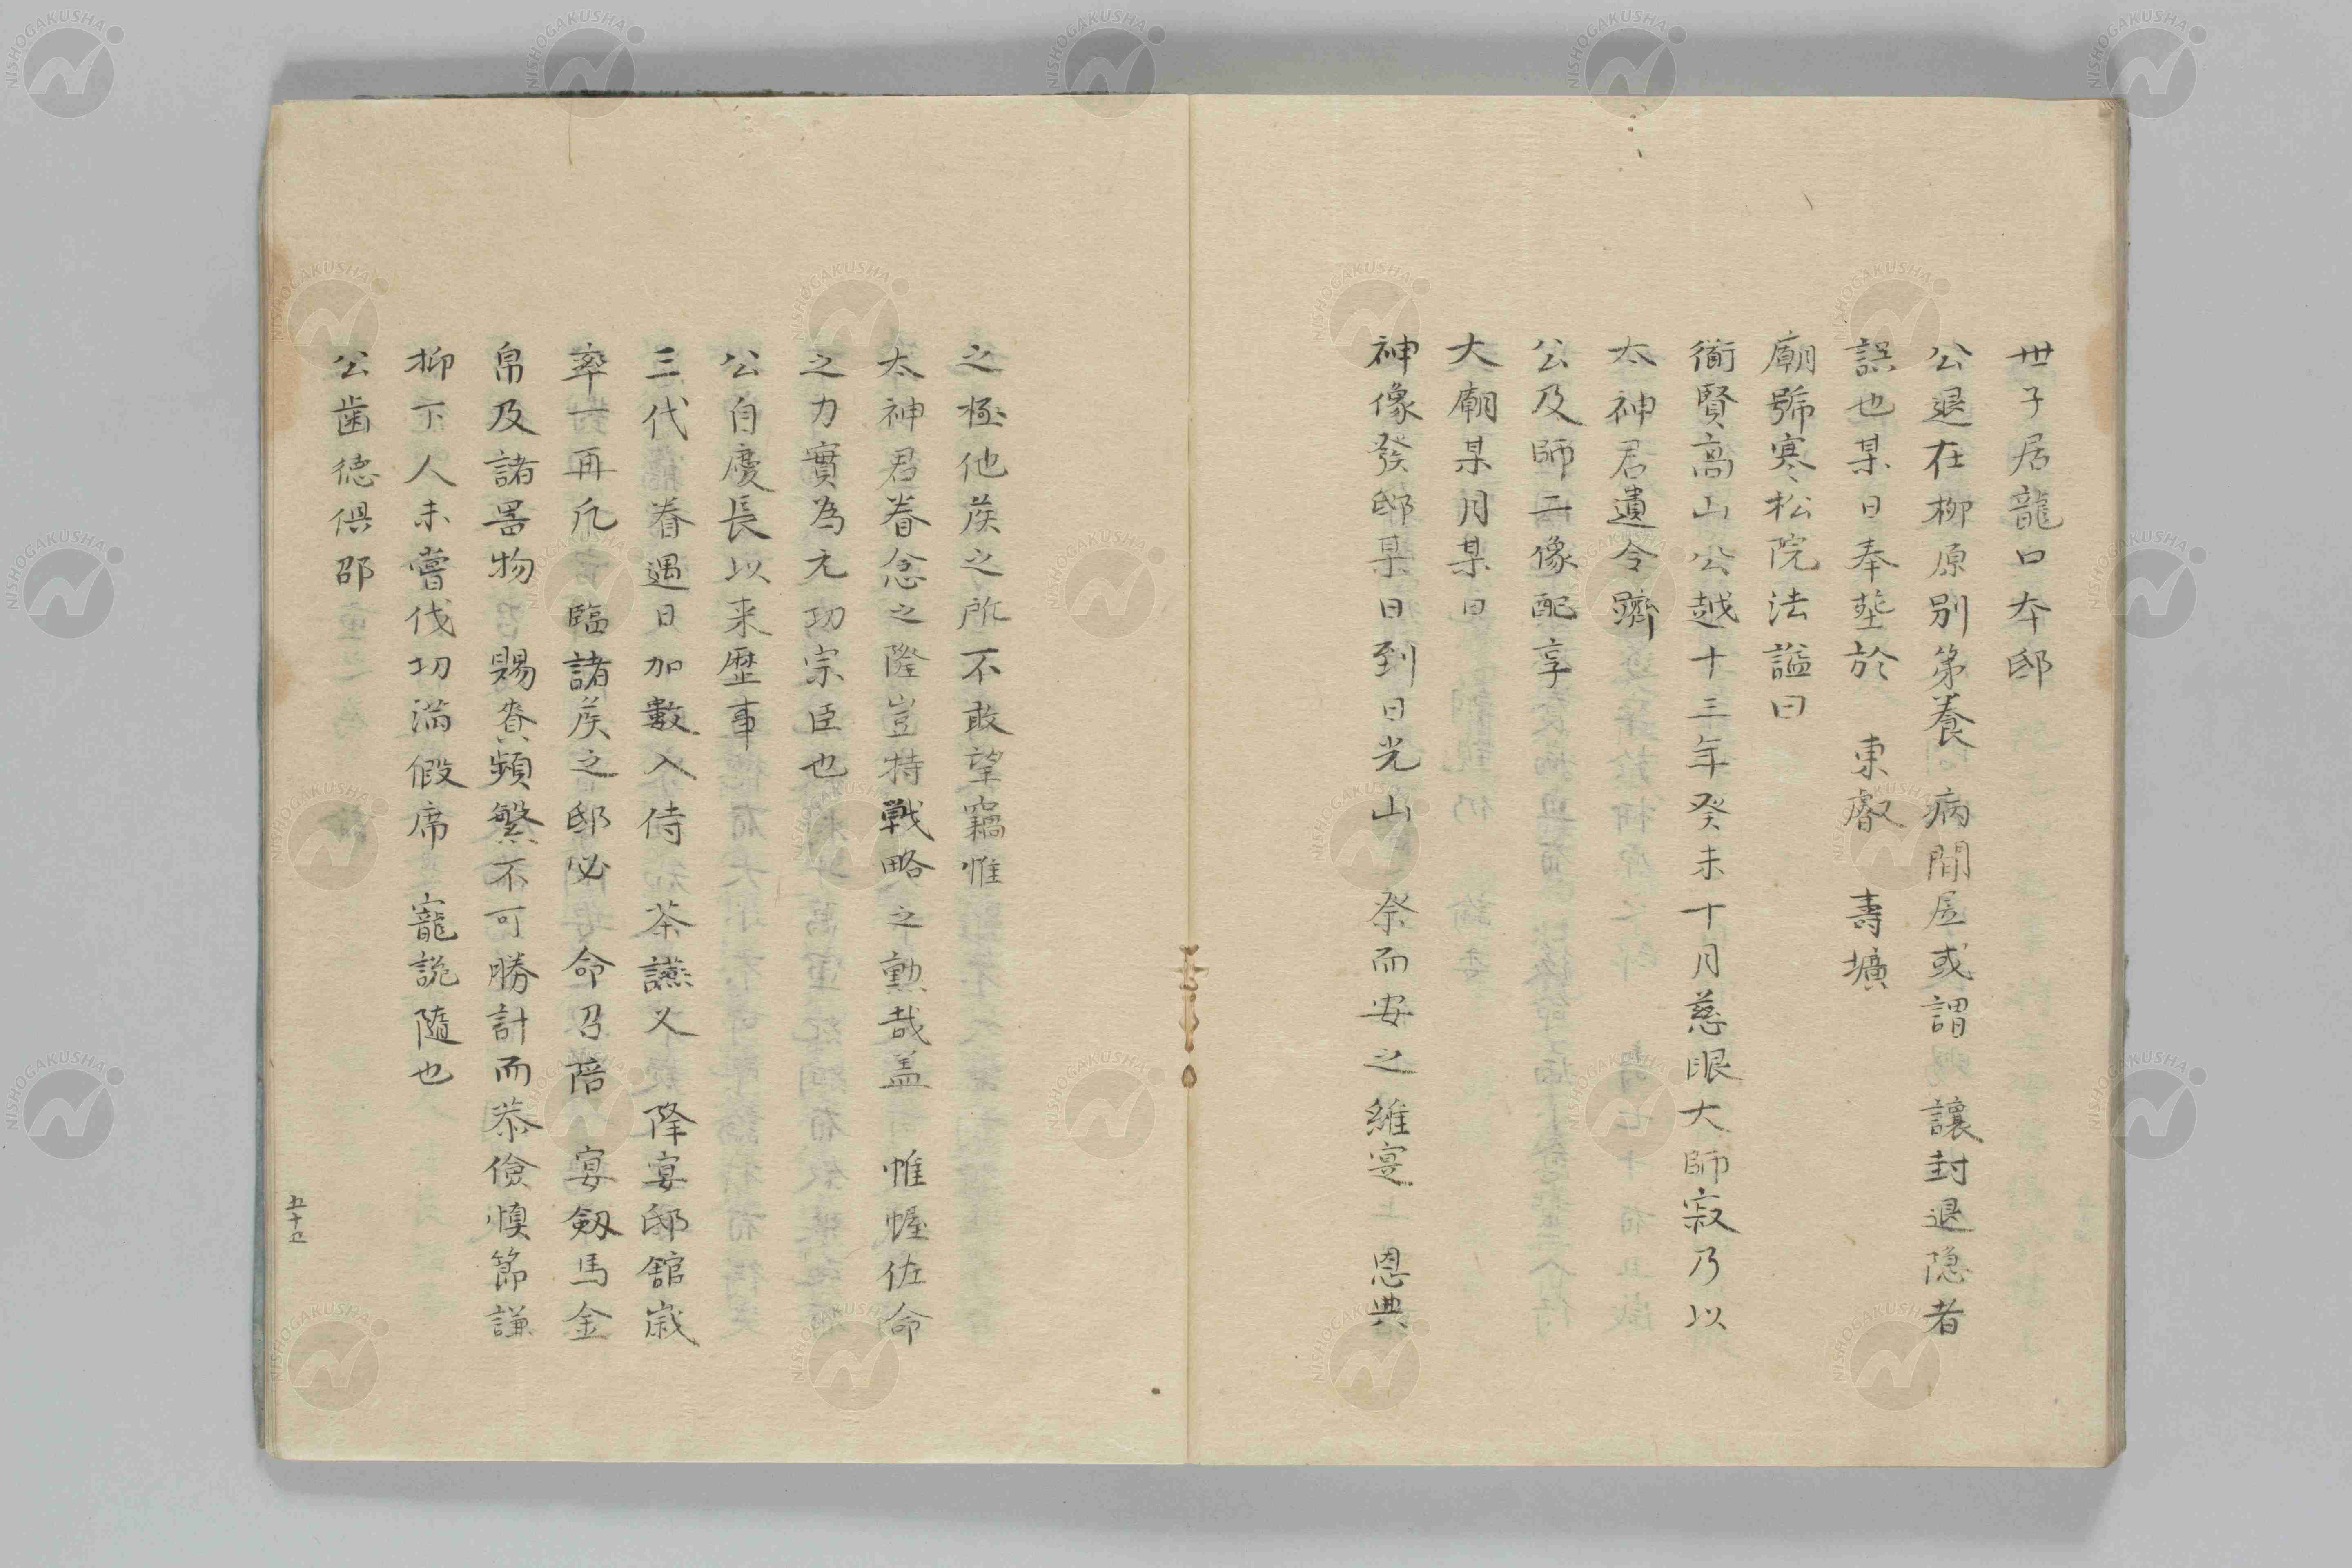 世子居龍口本邸
公退在柳原別第養 病間居或謂 讓封退隐者
誤也某日奉塟於 東叡 壽壙
廟號寒松院法諡曰
衜賢高山公越十三年癸未十月慈眼大師寂乃以
太神君遺令躋
公及師二像配享
大廟某月某日
神像發邸某日到日光山 祭而安之維寔 恩典
之極他矦之所不敢望竊惟
太神君眷念之隆豈特戦略之勲哉盖 惟幄佐命
之力實為元功宗臣也
公自慶長以来歴事
三代 眷遇日加數入侍茶讌又 降宴邸舘歳
率一再凡 臨諸矦之邸必 命召陪 宴劔馬金
帛及諸噐物 賜賚頻繁不可勝計而恭儉慎節謙
抑下人未嘗伐功滿假席 寵詭隨也
公歯徳俱邵
五十五
NISHOGAKUSHA